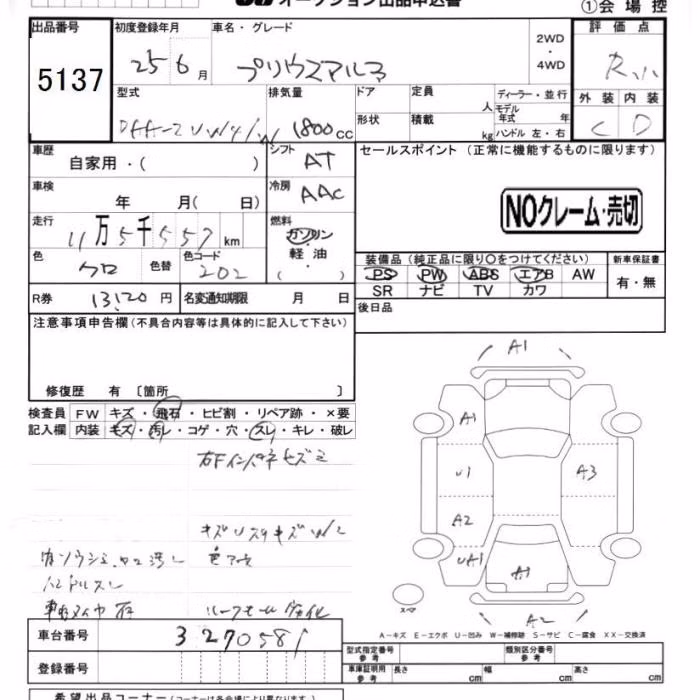 オークション出品申込書
①会場控
出品番号
5137
初度登録年月
25 6月
車名・グレード
プリウスアルファ
2WD
・
4WD
評価点
外装 内装
C D
型式
排気量
1800cc
ドア
形状
定員 人
積載 kg
ディーラー・並行
モデル
年式 年
ハンドル 左・右
車歴
自家用・( )
シフト
AT
セールスポイント (正常に機能するものに限ります)
車検
年 月( 日)
冷房
AAC
NOクレーム・売切
走行
11万5千557km
燃料
ガソリン
・
軽油
( )
色
クロ
色替
色コード
202
装備品 (純正品に限り〇をつけてください)
PS PW ABS エアB AW
SR ナビ TV カワ
新車保証書
有・無
R券
13120円
名変通知期限 月 日
後日品
注意事項申告欄(不具合内容等は具体的に記入して下さい)
修復歴 有 〔箇所 〕
検査員
記入欄
FW キズ・飛石・ヒビ割・リペア跡・×要
内装 キズ・汚レ・コゲ・穴・スレ・キレ・破レ
右Fインパネキズミ
ハンドルスレ
ルーフモール劣化
A1
A1
U1
A3
A2
UA1
A1
A2
スペア
A-キズ E-エクボ U-凹み W-補修跡 S-サビ C-腐食 XX-交換済
車台番号
3270581
登録番号
型式指定番号
参考
類別区分番号
参考
車庫証明用
参考
長さ cm
幅 cm
高さ cm
希望出品コーナー(コーナーは各会場により異なります)